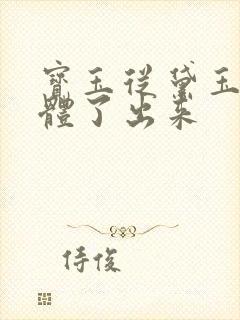 寶玉從黛玉
體了出來
侍俊